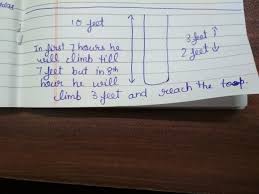 10 feet
3 feet ↑
2 feet ↓
In first 7 hours he
will climb till
7 feet but in 8th
hour he will
climb 3 feet and reach the top.